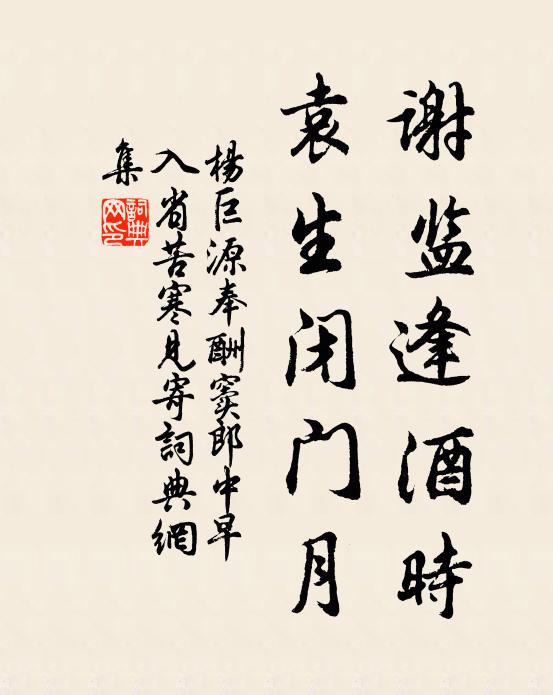 谢监逢酒時
袁生闭门月
楊巨源奉酬窦郎中早
入省苦寒見寄詞典網
集
詞典网印